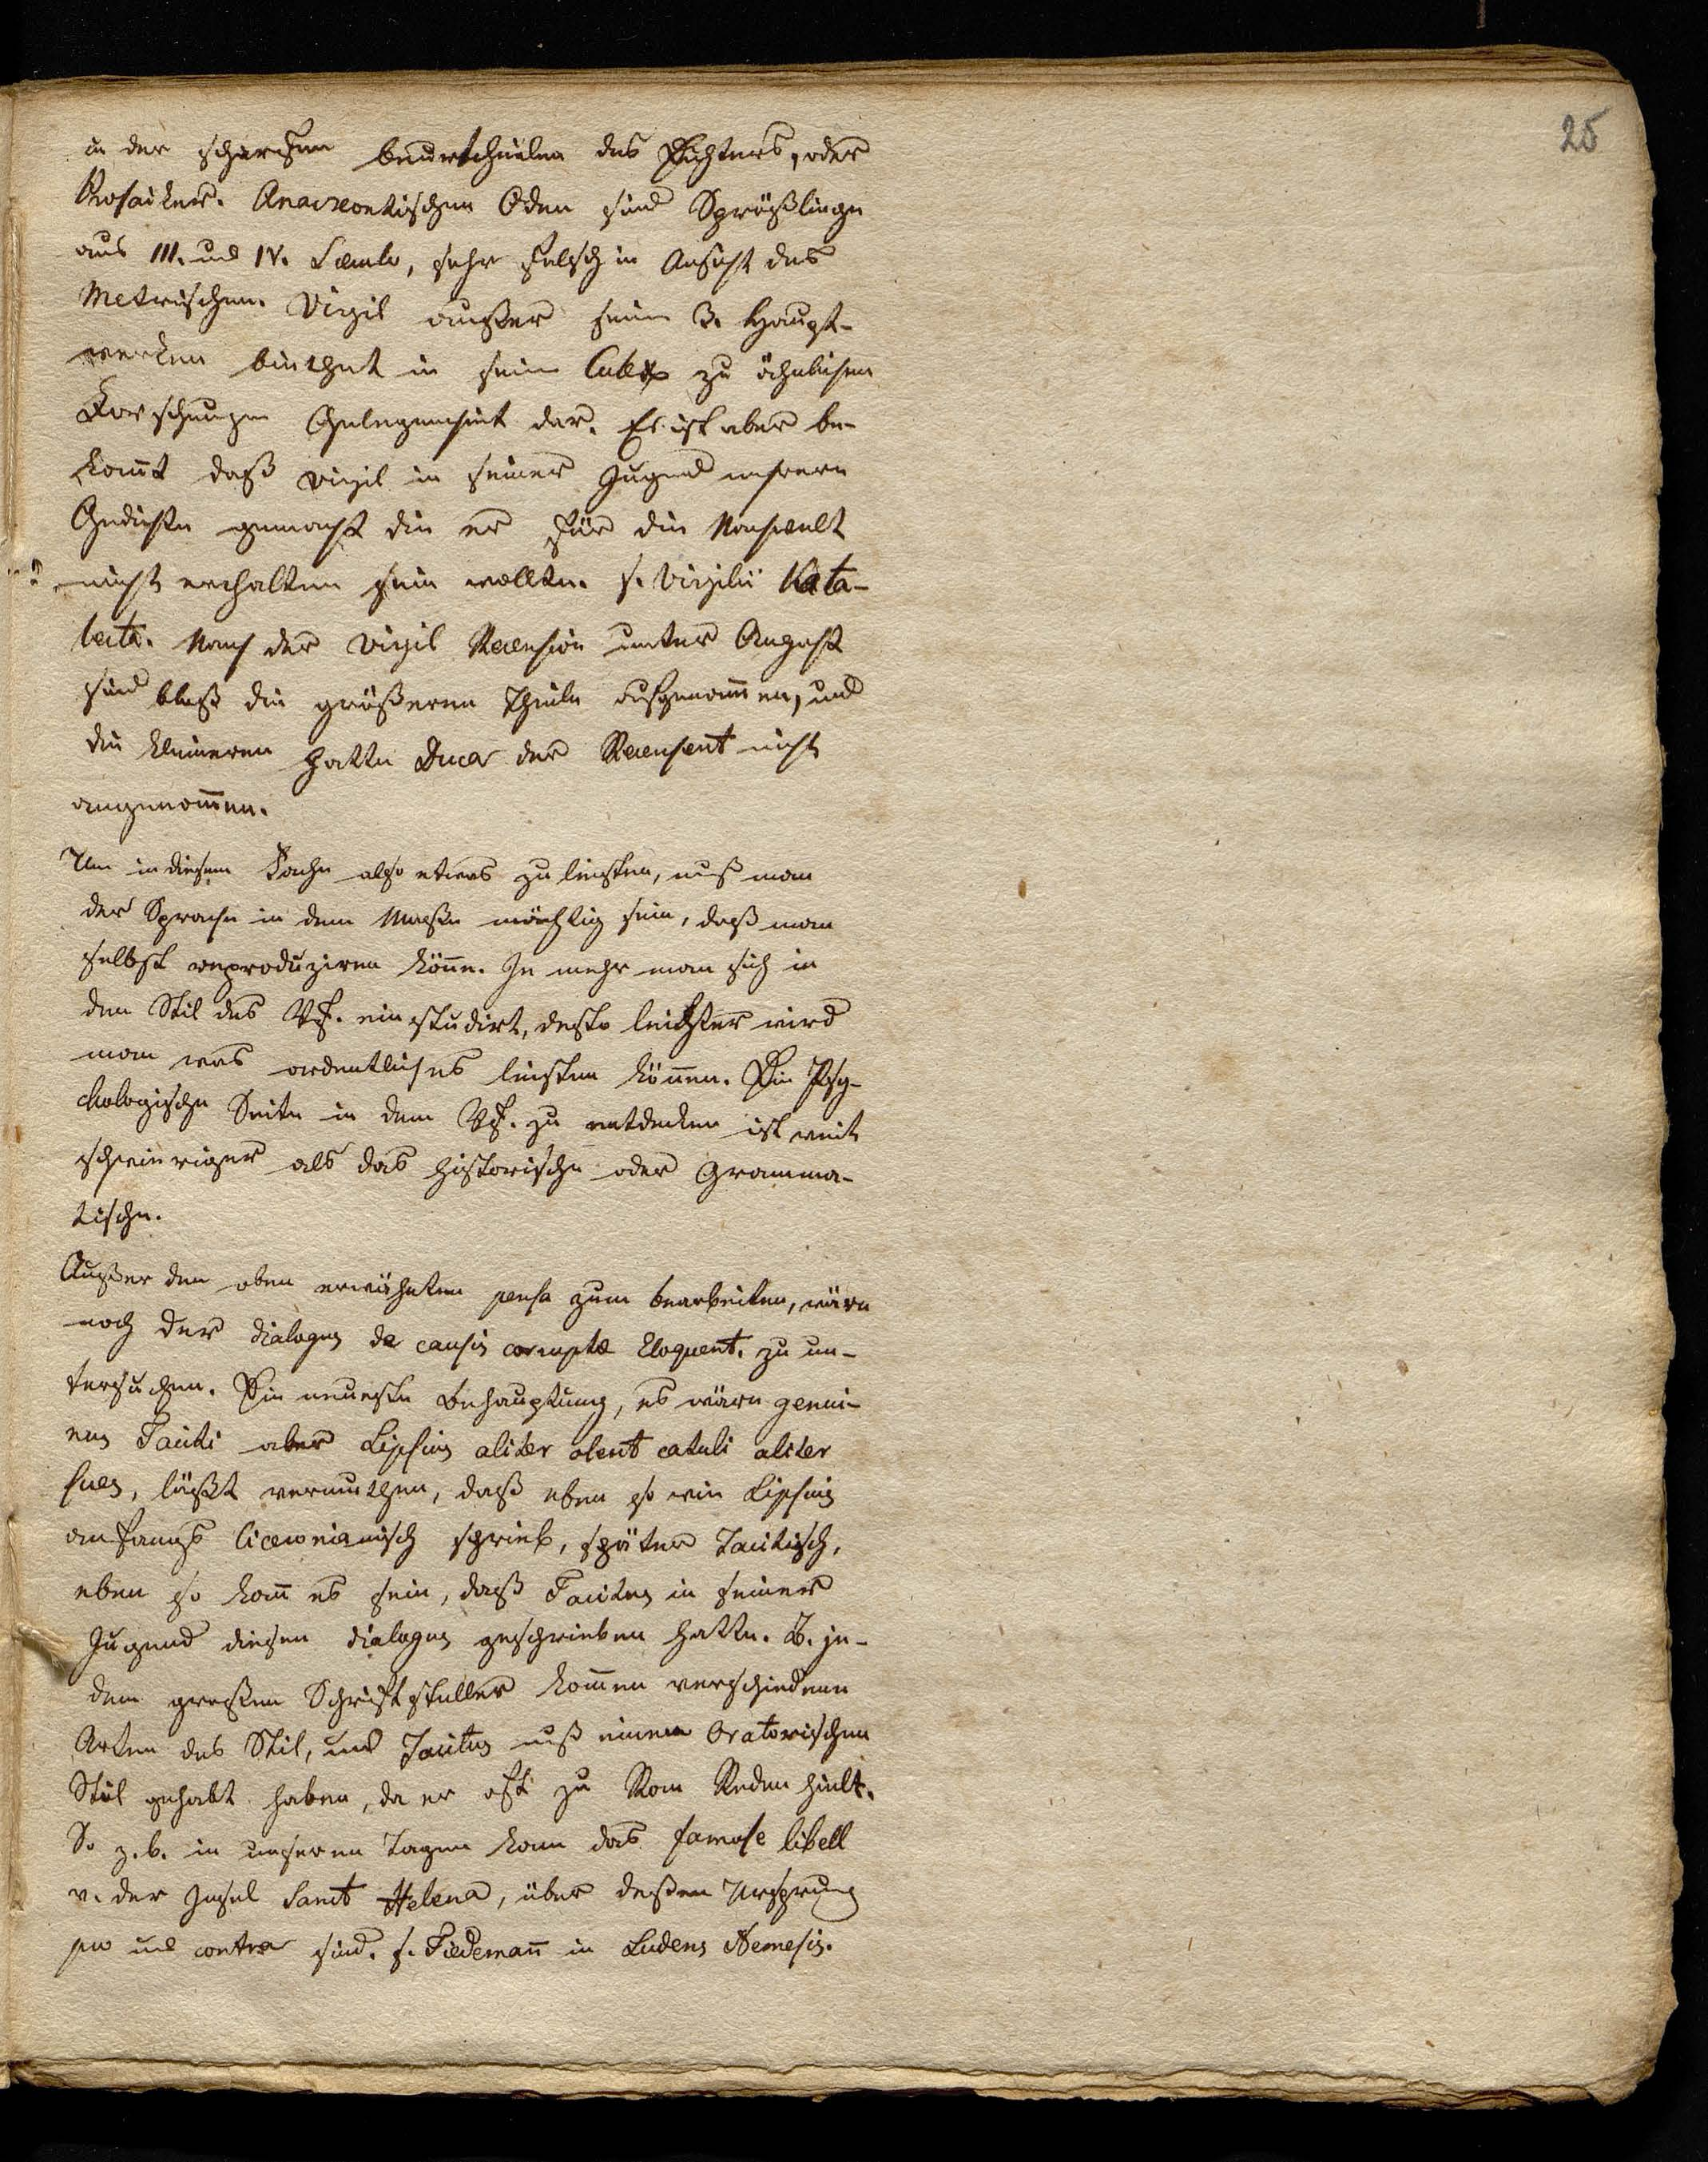 25
in der scharfen beurtheilen des Dichters, oder
Prosaiker. Anacreontischen Oden sind Sprößlinge
aus III. und IV. Saeculo, sehr falsch in Ansicht des
Metrischen. Virgil außer seinen 3. Haupt-
werken biethet in sein Culex zu ähnlichen
Forschungen Gelegenheit dar. Es ist aber be-
kannt daß Virgil in seiner Jugend mehrere
Gedichte gemacht die er für die Nachwelt
nicht erhalten sein wollte. s. Virgilii Kata-
lecta. Nach der Virgil Recension unter August
sind bloß die größeren Theile aufgenommen, und
die kleineren hatte der Recensent nicht
angenommen.
Um in diesem Fache also etwas zu leisten, muß man
der Sprache in dem Maaße mächtig sein, daß man
selbst reproduziren könne. Je mehr man sich in
den Stil des Vf. einstudirt, desto leichter wird
man was ordentliches leisten können. Die Psy-
chologische Seite in dem Vf. zu entdecken ist weit
schwieriger als das historische oder Gramma-
tische.
Außer den oben erwähnten pensa zum bearbeiten, wäre
noch der dialogus de causis corruptae Eloquent. zu un-
tersuchen. Die neueste Behauptung, es wäre genui-
nus Taciti aber Lipsius aliter olent catuli aliter
sues, läßt vermuthen, daß eben so wie Lipsius
anfangs Ciceronianisch schrieb, später Tacitisch,
eben so kann es sein, daß Tacitus in seiner
Jugend diesen dialogus geschrieben hatte. B. je-
dem großen Schriftsteller kommen verschiedene
Arten des Stil, und Tacitus muß einen Oratorischen
Stil gehabt haben, da er oft zu Rom Reden hielt.
So z.b. in unseren Tagen kam das famose libell
v. der Insel Sanct Helena, über deßen Ursprung
pro und contra sind. s. Tiedemann in Ludens Nemesis.